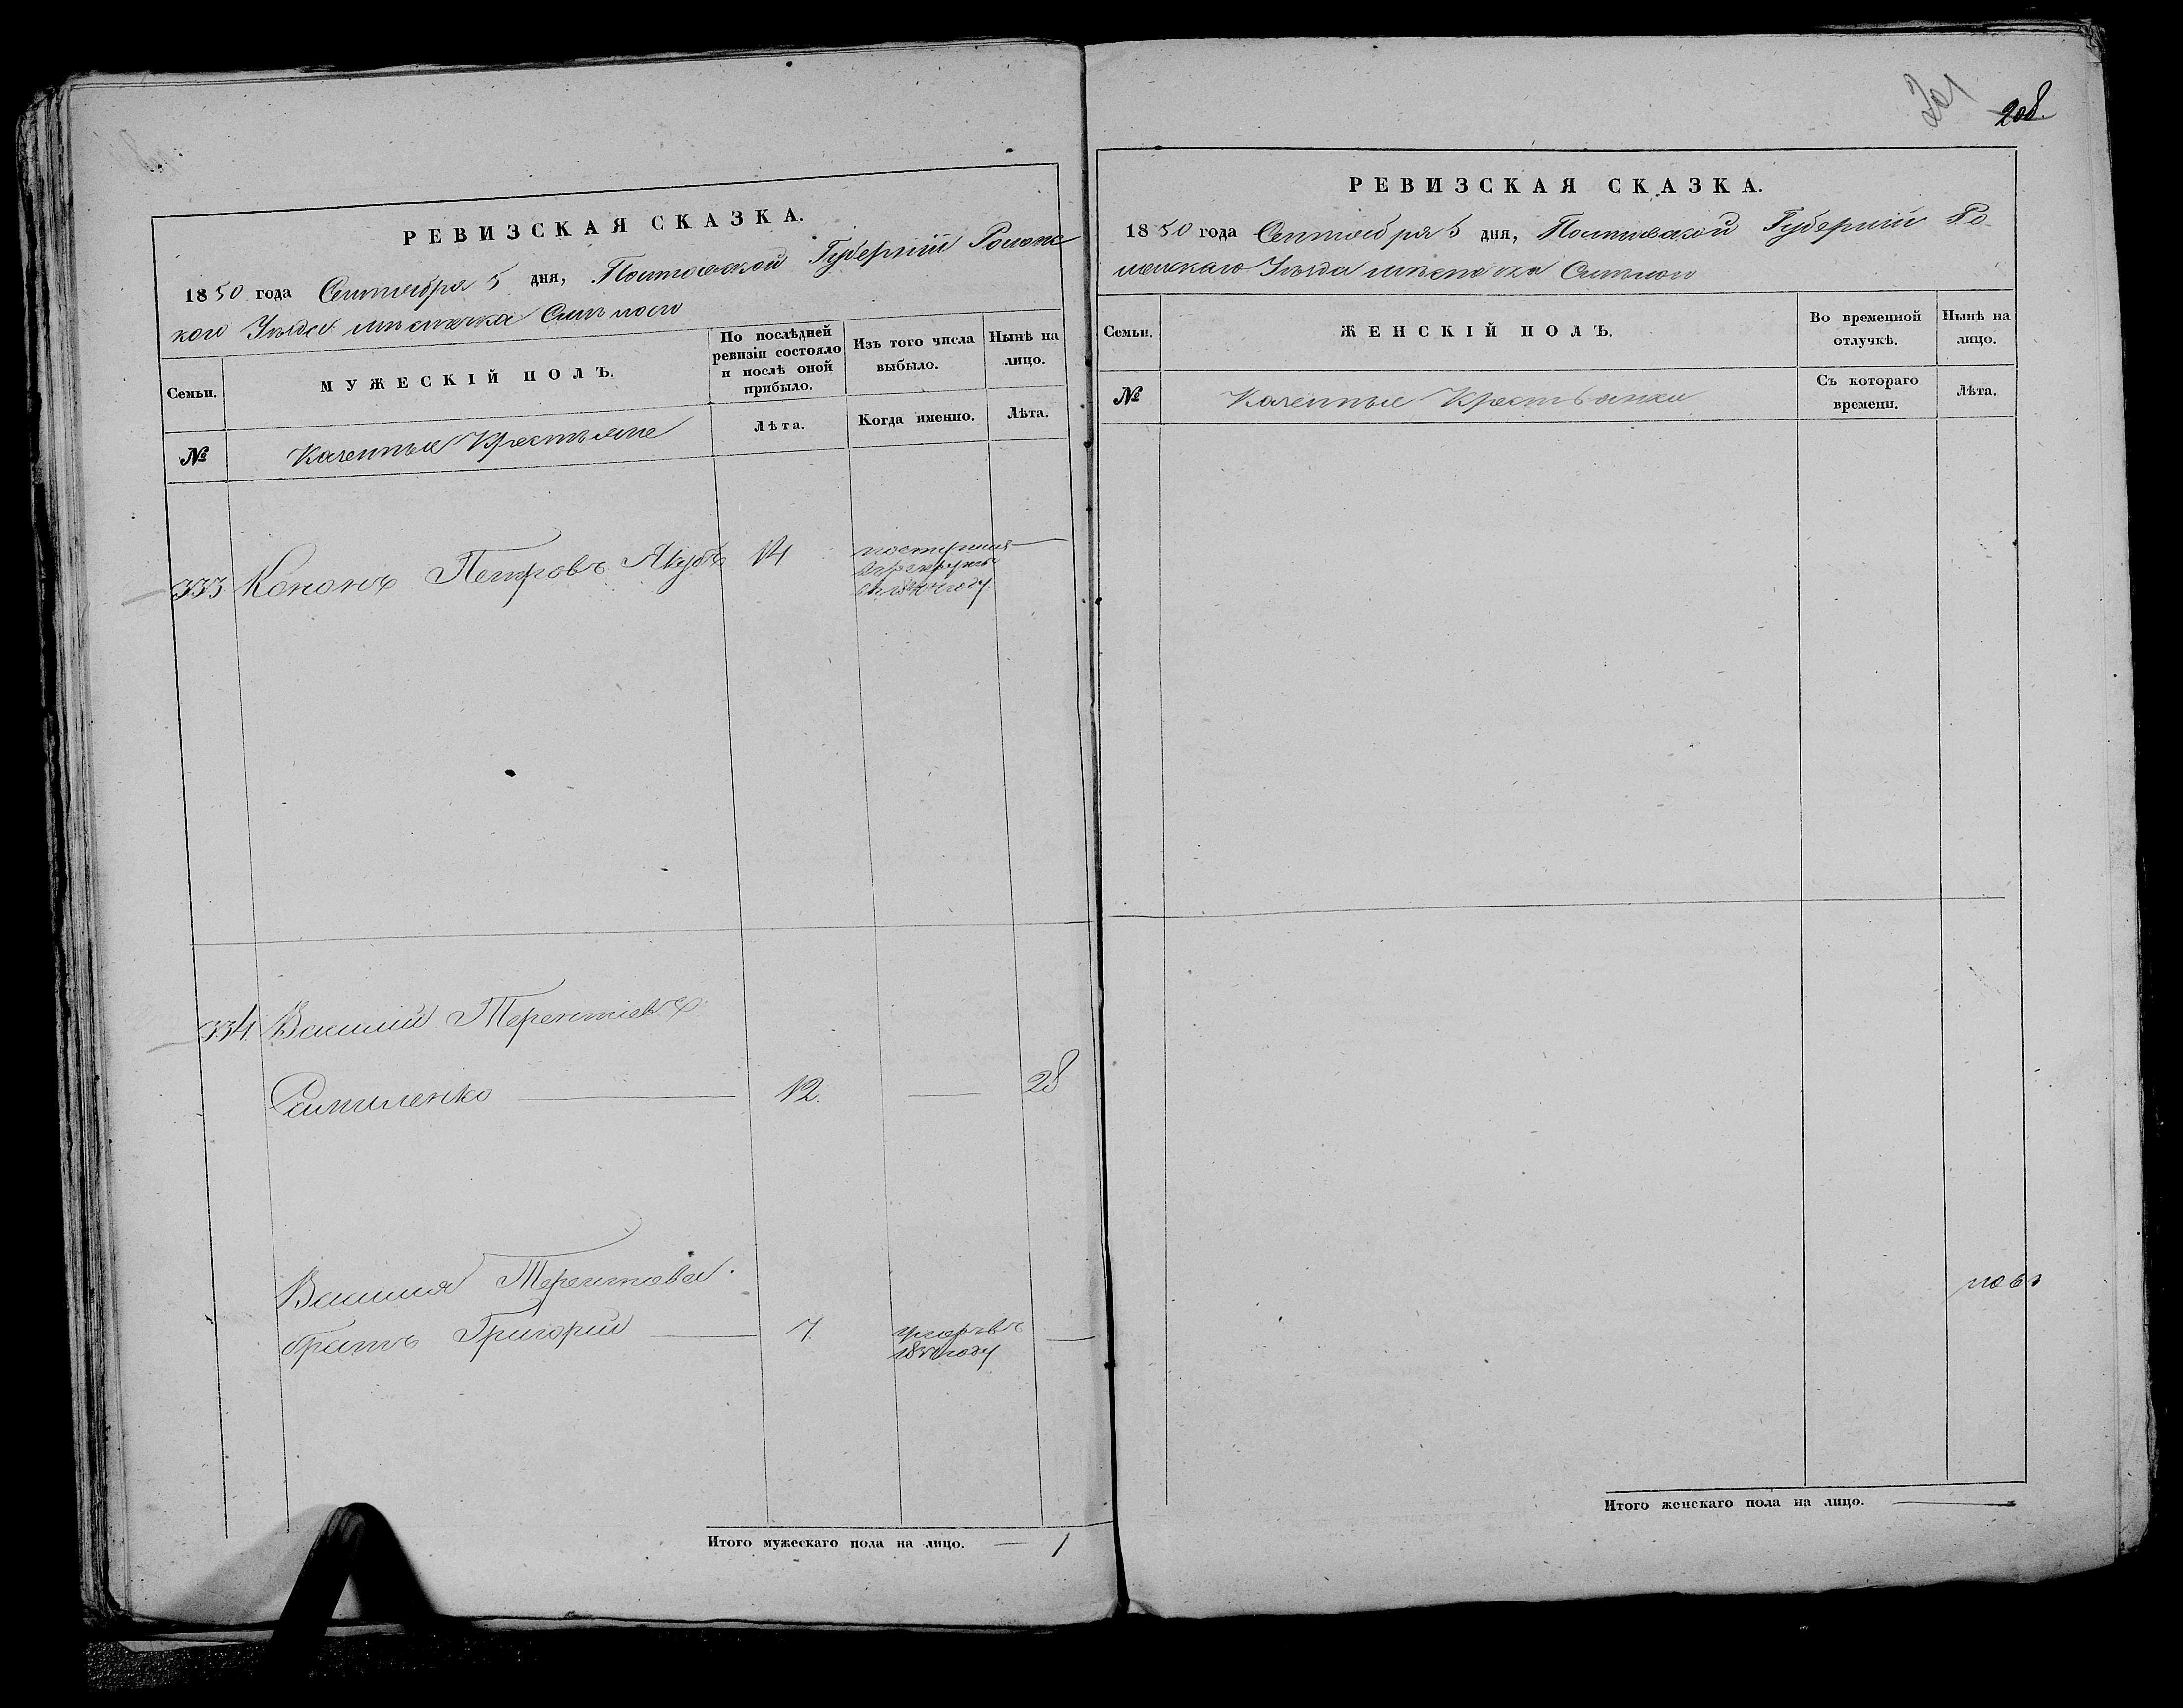 РЕВИЗСКАЯ СКАЗКА.
1850 года Сентября 5 дня, Полтавской Губерніи Роменс
каго Уѣзда мѣстечка Смѣлого
Семьи.
МУЖЕСКІЙ ПОЛЪ.
По послѣдней ревизіи состояло и послѣ оной прибыло.
Изъ того числа выбыло.
Ныпѣ на лицо.
№
Казенные Крестьяне
Лѣта.
Когда именно.
Лѣта.
333 Кононъ Петровъ Якубъ 14
въ рекруты
334. Василий Терентіевъ
12. 28
Василия Терентиева
братъ Григорий 7. умеръ въ
году
Итого мужескаго пола на лицо. 1
201
208.
РЕВИЗСКАЯ СКАЗКА.
1850 года Сентября 5 дня, Полтавской Губерніи Ро
менскаго Уѣзда мѣстечка Смѣлого
Семьи.
ЖЕНСКІЙ ПОЛЪ.
Во временной отлучкѣ.
Нынѣ на лицо.
№
Казенные Крестьянки
Съ котораго времени.
Лѣта.
Итого женскаго пола на лицо.